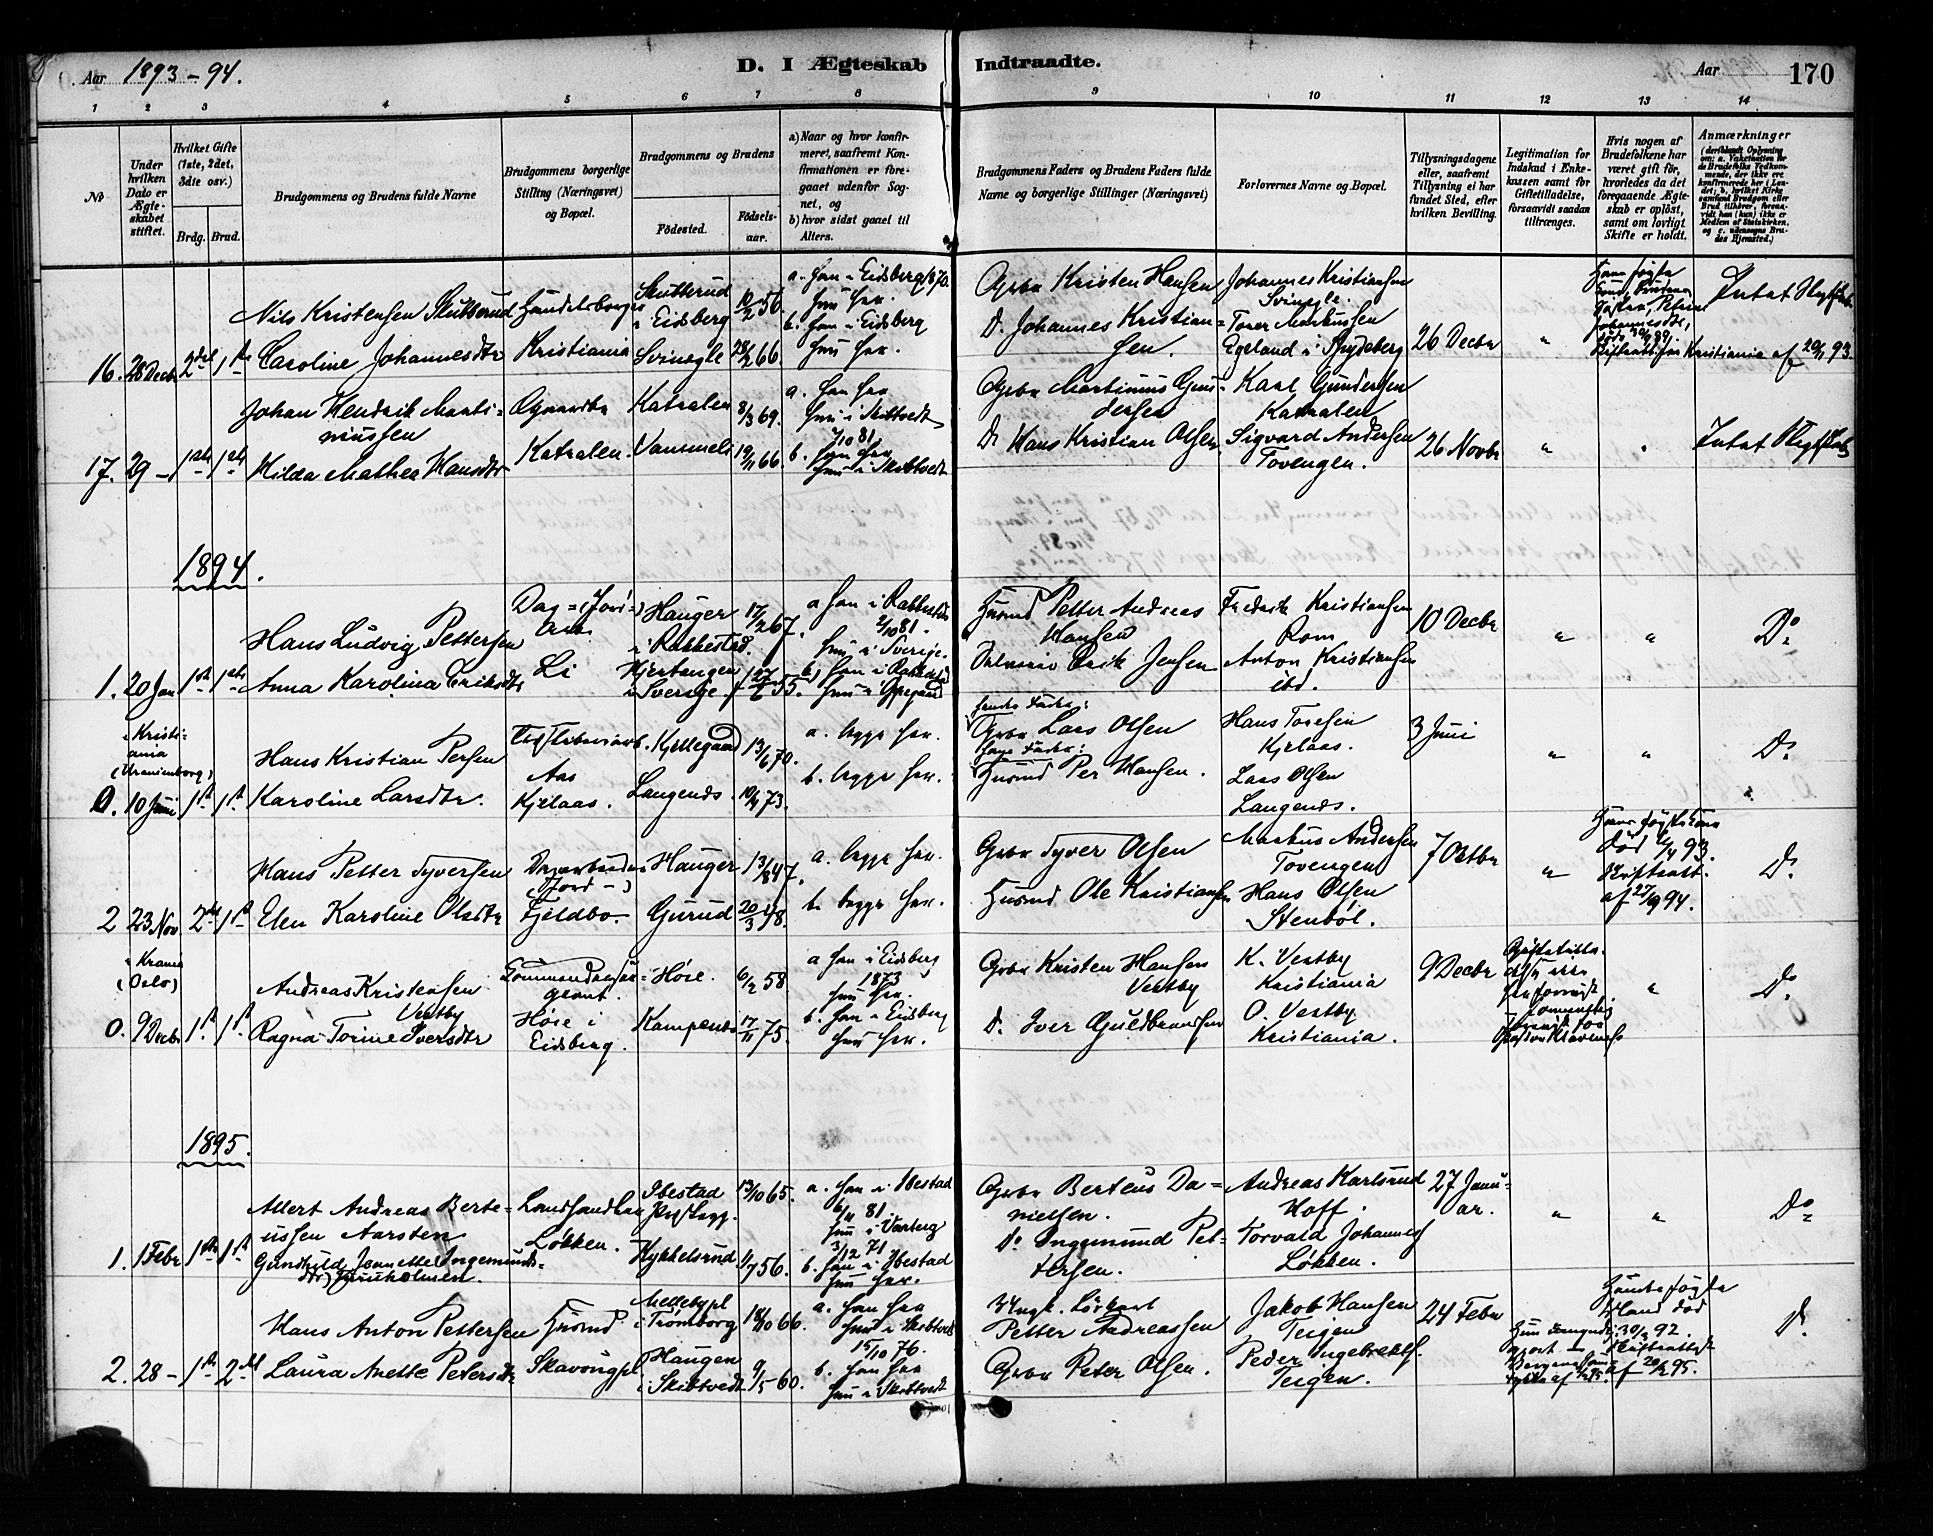 Aar 1893-94.
D. I Ægteskab Indtraadte.
Aar
170
1 2 3 4 5 6 7 8 9 10 11 12 13 14
No
Under hvilken Dato er Ægteskabet stiftet.
Hvilket Gifte (1ste, 2det, 3die osv.)
Brdg. Brud.
Brudgommens og Brudens fulde Navne
Brudgommens borgerlige Stilling (Næringsvei) og Bopæl.
Brudgommens og Brudens
Födested.
Födselsaar.
a) Naar og hvor konfirmeret, saafremt Konfirmationen er foregaaet udenfor Sognet, og
b) hvor sidst gaaet til Alters.
Brudgommens Faders og Brudens Faders fulde Navne og borgerlige Stillinger (Næringsvei)
Forlovernes Navne og Bopæl.
Tillysningsdagene eller, saafremt Tillysning ei har fundet Sted, efter hvilken Bevilling.
Legitimation for Indskud i Enkekassen samt for Giftetilladelse, forsaavidt saadan tiltrænges.
Hvis nogen af Brudefolkene har været gift för, hvorledes da det foregaaende Ægteskab er oplöst, samt om lovligt Skifte er holdt.
Anmærkninger
16. 28 Decbr 2det 1ste
Nils Kristensen Skutterud
Caroline Johannesdtr
Handelsborger
Kristiania
Skutterud
i Eidsberg
Svinegle
10/2 56.
28/2 66.
a. han i Eidsberg 1870.
hun her.
b. han i Eidsberg
hun her.
Grbr Kristen Hansen
Do Johannes Kristian=
sen.
Johannes Kristiansen
Svinegle.
Torer Markussen
Egeland i Spydeberg
26 Decbr
"
Kristiania af 20/11 93.
17. 29 - 1ste 1ste
Johan Hendrik Marti=
niussen
Hilda Mathea Hansdtr
Gaardbr
Katralen.
Katralen
Vammeli
8/3 69.
19/11 66.
a. han her
hun i Skibtvedt
7/10 81
b. han her
hun i Skibtvedt
Grbr Martinius Gun=
dersen
Do Hans Kristian Olsen.
Karl Gundersen
Katralen
Sigvard Andersen
Tovengen.
26 Novbr
"
"
1894.
1. 20 Jan 1ste 1ste
Hans Ludvig Pettersen
Anna Karolina Eriksdtr
Dag= (Jord=)
Arb.
Li
Hauger
i Rakkestad.
i Sverige
17/2 67.
a han i Rakkestad
2/10 81.
hun i Sverige.
b) han i Rakkestad
Husmd Petter Andreas
Hansen
Erik Jensen
Fredrik Kristiansen
Rom
Anton Kristiansen
ibd.
10 Decbr
"
"
Do
i Kristi=
ania
(Uranienborg)
0. 10 Juni 1ste 1ste
Hans Kristian Persen
Karoline Larsdtr.
Aas
Kjelaas.
Kjellegaard
Langenæs.
13/6 70.
10/4 73.
a. begge her.
b. begge her.
hendes Fader:
Grbr Lars Olsen
hans Fader:
Husmd Per Hansen.
Hans Toresen
Kjelaas.
Lars Olsen
Langenæs.
3 Juni
"
"
Do
2 23 Nov 2det 1ste
Hans Petter Syversen
Elen Karoline Olsdtr
Dagarbeider
(Jord-)
Fjeldbo-
Hauger
Gurud
13/8 47.
20/3 48.
a. begge her.
b. begge her.
Grbr Syver Olsen
Husmd Ole Kristiansen
Markus Andersen
Tovengen
Hans Olsen
Stenböl.
7 Octbr
"
død 6/4 93.
Skifteatt.
af 27/9 94.
Do
(Oslo)
0. 9 Decbr 1ste 1ste
Andreas Kristensen
Vestby
Ragna Torine Iversdtr
Høie i
Eidsberg.
Høie.
Kampenæs
6/2 58
17/11 75.
a han i Eidsberg
1873
hun her.
b. han i Eidsberg
hun her.
Grbr Kristen Hansen
Vestby
Do Iver Guldbrandsen
K. Vestby
Kristiania
O. Vestby
Kristiania.
9 Decbr
"
Do
1895.
1. 1 Febr 1ste 1ste
Albert Andreas Berte=
ussen Aarsten
Gunhild Jeanette Ingemunds=
dtr
Landhandler
Løkken.
Ibestad
Kykkelsrud
13/10 65.
1/7 56.
a. han i Ibestad
6/11 81
hun i Varteig
3/12 71
b. han i Ibestad
hun her.
Grbr Berteus Da=
nielsen.
Do Ingemund Pet=
tersen.
Andreas Karlsrud
Hoff.
Torvald Johannes
Løkken.
27 Janu=
ar.
"
"
Do
2. 28 - 1ste 2det
Hans Anton Pettersen
Laura Anette Petersdtr
Husmd
Skavougpl
i Trømborg
Haugen
i Skibtvedt
18/10 66.
9/5 60.
a. han her
hun i Skibtvedt
15/10 76.
b. han her
hun i Skibtvedt
Petter Andreassen
Grbr Peter Olsen.
Jakob Hansen
Teigen
Peder Ingebretsen
Teigen.
24 Febr
Hendes første
Mand død
30/3 92.
Skifteattest
af 20/2 95.
Do